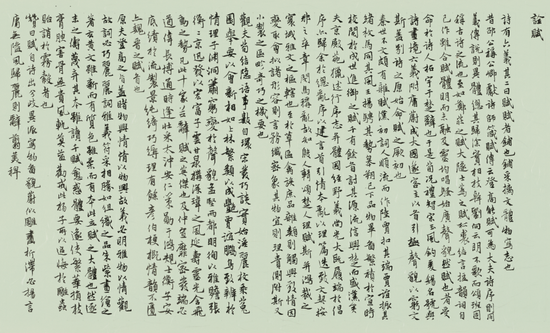 詮賦
詩有六義其二曰賦賦者鋪也鋪采摛文體物寫志也
昔邵公稱公卿獻詩師箴瞍賦傳云登高能賦可為大夫詩序則同
義傳說則異體總其歸塗實相枝幹故劉向明不歌而頌班固
稱古詩之流也至如鄭莊之賦大隧士蒍之賦狐裘結言短韻詞自
己作雖合賦體明而未融及靈均唱騷始廣聲貌然則賦也者受
命於詩人拓宇於楚辭也於是荀況禮智宋玉風釣爰錫名號與
詩畫境六義附庸蔚成大國遂客主以首引極聲貌以窮文
斯蓋別詩之原始命賦之厥初也
秦世不文頗有雜賦漢初詞人順流而作陸賈扣其端賈誼振其
緒枚馬同其風王揚騁其勢皋朔已下品物畢圖繁積於宣時
校閱於成世進御之賦千有餘首討其源流信興楚而盛漢矣
夫京殿苑獵述行序志並體國經野義尚光大既履端於倡
序亦歸餘於總亂序以建言首引情本亂以理篇迭致文契按
那之卒章閔馬稱亂故知殷人輯頌楚人理賦斯並鴻裁之
寰域雅文之樞轄也至於草區禽族庶品雜類則觸興致情因
變取會擬諸形容則言務纖密象其物宜則理貴側附斯又
小製之區畛奇巧之機要也
觀夫荀結隱語事數自環宋發巧談實始淫麗枚乘菟
園舉要以會新相如上林繁類以成豔賈誼鵩鳥致辨於
情理子淵洞簫窮變於聲貌孟堅兩都明絢以雅贍張
衡二京迅發以宏富子雲甘泉構深瑋之風延壽靈光含飛
動之勢凡此十家並辭賦之英傑也及仲宣靡密發端必
遒偉長博通時逢壯采太沖安仁策勳於鴻規士衡子安
底績於流製景純綺巧縟理有餘彥伯梗概情韻不匱
亦魏晉之賦首也
原夫登高之旨蓋睹物興情情以物興故義必明雅物以情觀
故詞必巧麗麗詞雅義符采相勝如組織之品朱紫畫繪之
著玄黃文雖新而有質色雖糅而有本此立賦之大體也然逐
末之儔蔑棄其本雖讀千賦愈惑體要遂使繁華損枝
膏腴害骨無貴風軌莫益勸戒此揚子所以追悔於雕蟲
貽誚於霧縠者也
贊曰賦自詩出分歧異派寫物圖貌蔚似雕畫抑滯必揚言
庸無隘風歸麗則辭翦美稗